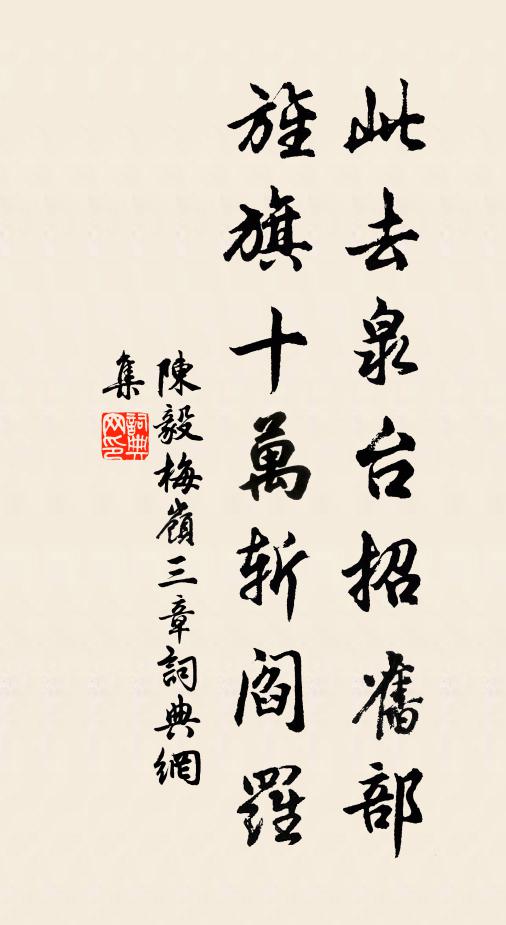 此去泉台招舊部
旌旗十萬斬閻羅
陳毅梅嶺三章詞典網
集
詞典网印